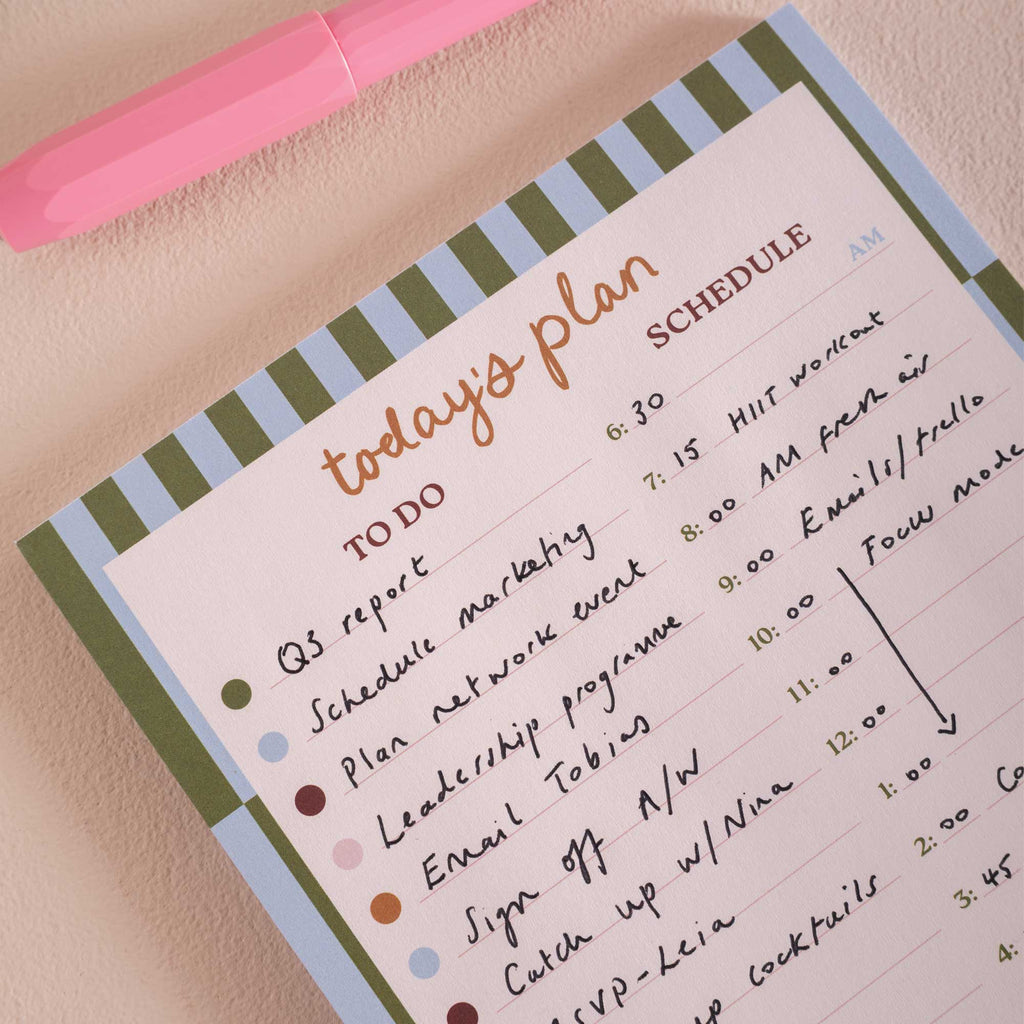 today's plan
TO DO
Q3 report
Schedule marketing
Plan network event
Leadership programme
Email Tobias
Sign off A/W
Catch up w/Nina
RSVP-Leia
cocktails
SCHEDULE
AM
6:30
7:15 HIIT workout
8:00 AM fresh air
9:00 Emails/trello
10:00 Focus mode
11:00
12:00
1:00
2:00
3:45
4: